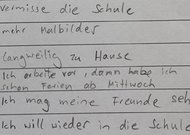 vermisse die Schule
mehr Malbilder
Langweilig zu Hause
Ich arbeite vor, dann habe ich
schon Ferien ab Mittwoch
Ich mag meine Freunde seh
Ich will wieder in die Schule